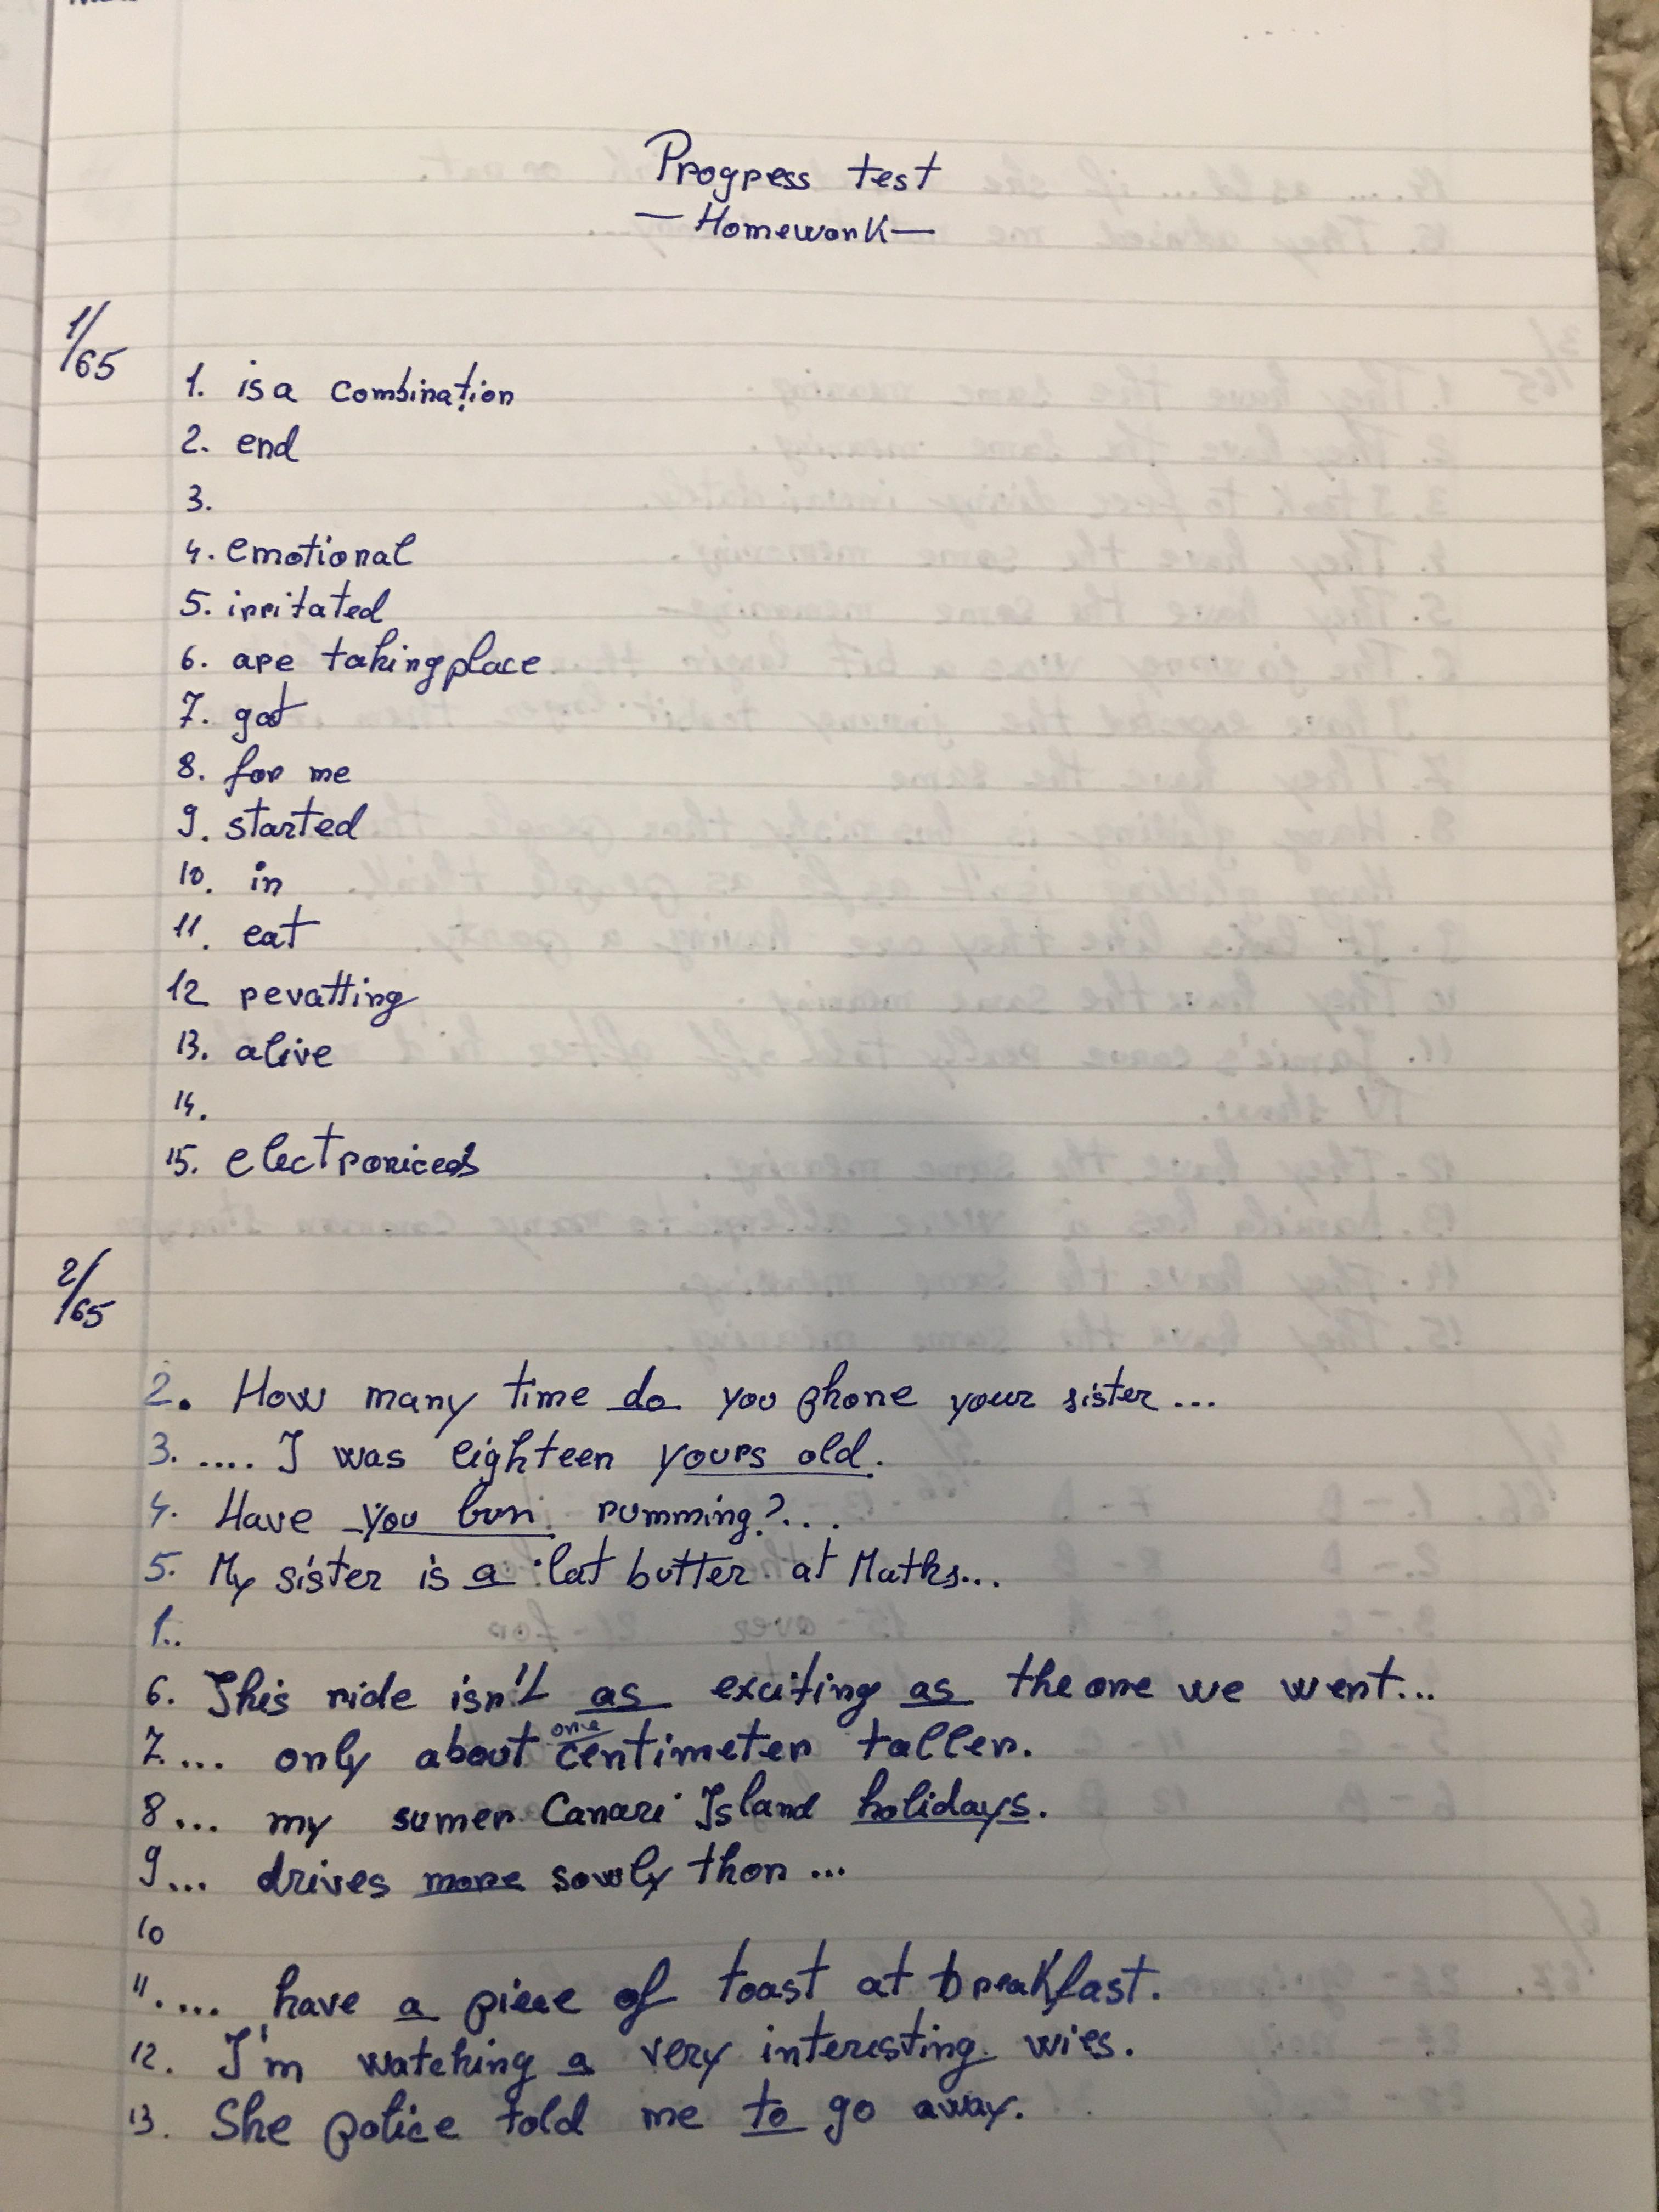 Progress test
— Homework —
1/65
1. is a combination
2. end
3.
4. emotional
5. irritated
6. are taking place
7. got
8. for me
9. started
10. in
11. eat
12 revatting
13. alive
14.
15. electronices
2/65
2. How many time do you phone your sister ...
3. .... I was eighteen yours old.
4. Have you bun rumming? ...
5. My sister is a lat butter at Maths...
1..
6. This ride isn't as exciting as the one we went...
7. ... only about one centimeter taller.
8 ... my sumer Canari Island holidays.
9 ... drives more sowly thon ...
10
11. ... have a piece of toast at breakfast.
12. I'm watching a very interesting wies.
13. She police told me to go away.